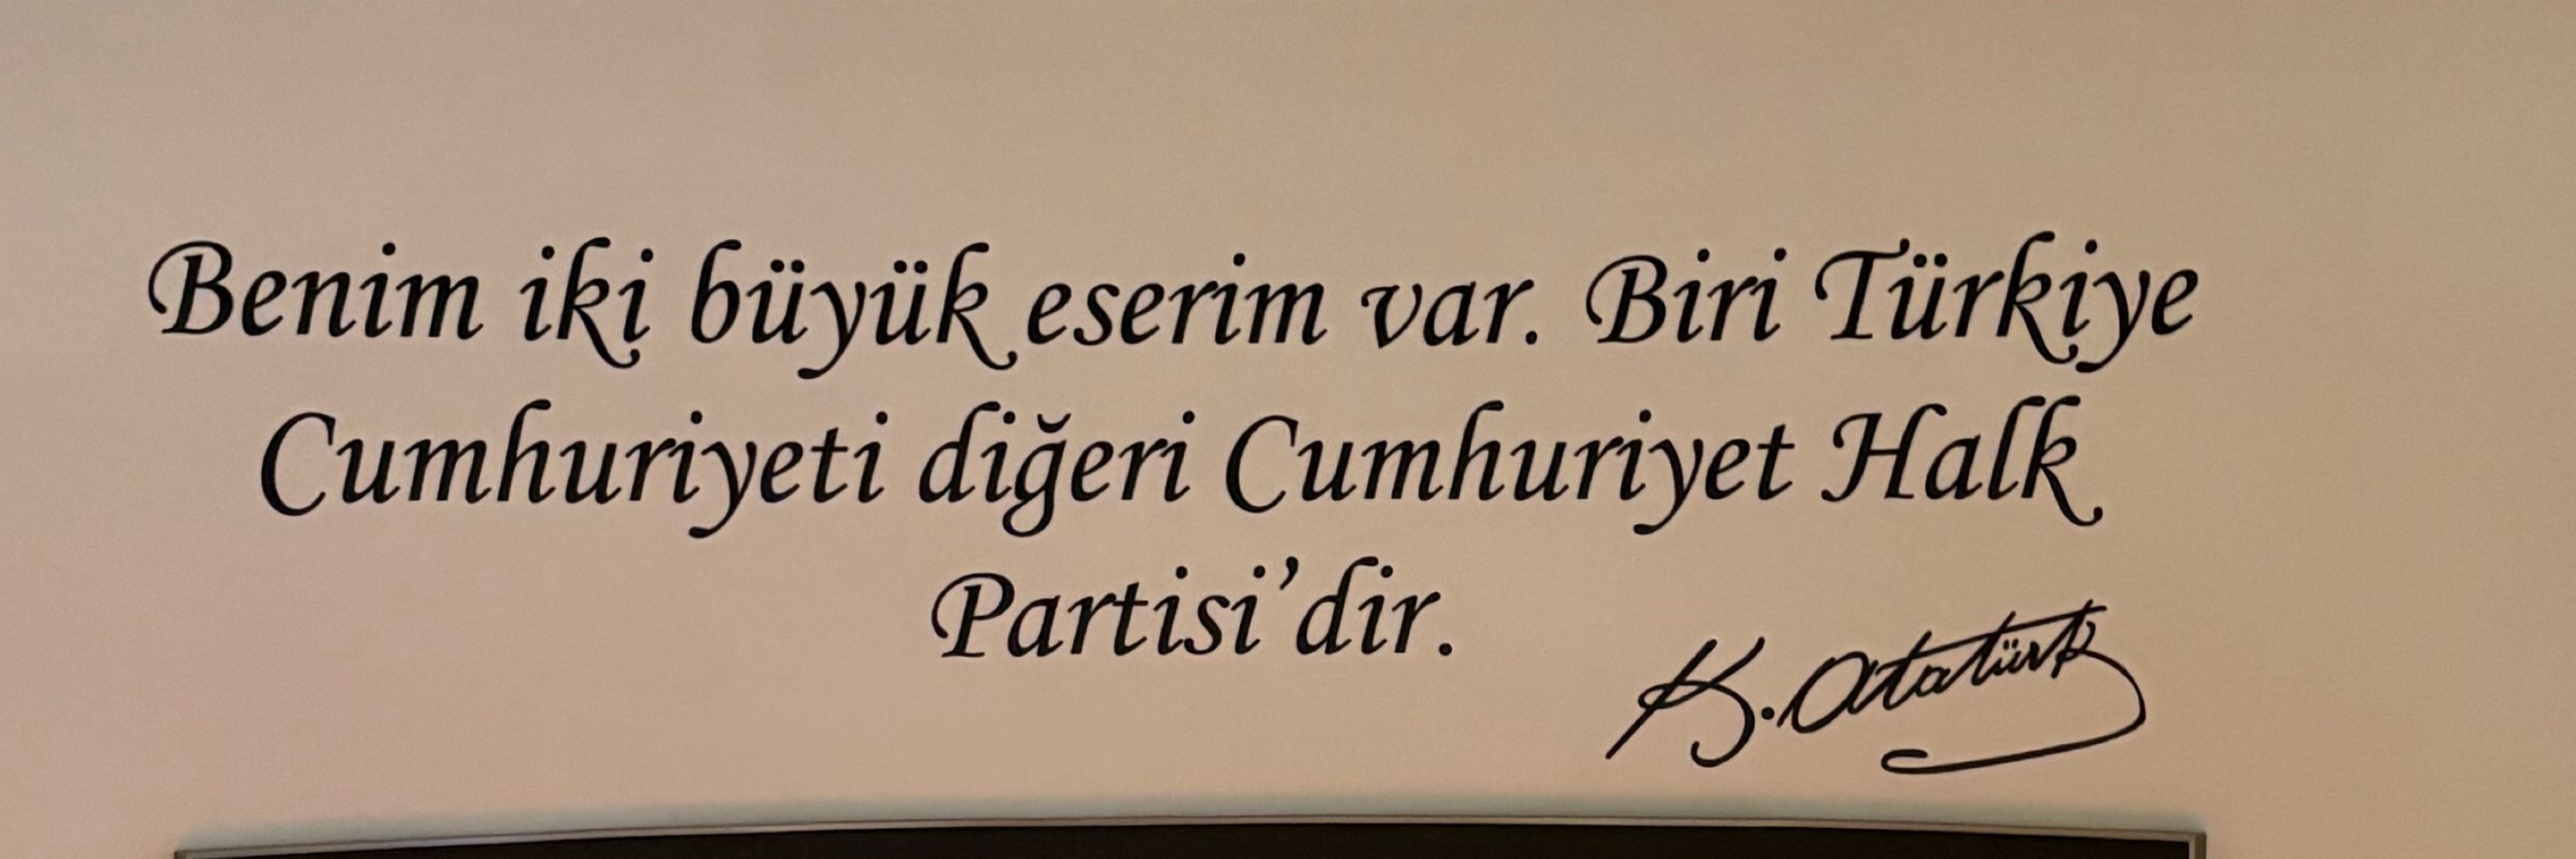 Benim iki büyük eserim var. Biri Türkiye
Cumhuriyeti diğeri Cumhuriyet Halk
Partisi’dir.
K. Atatürk